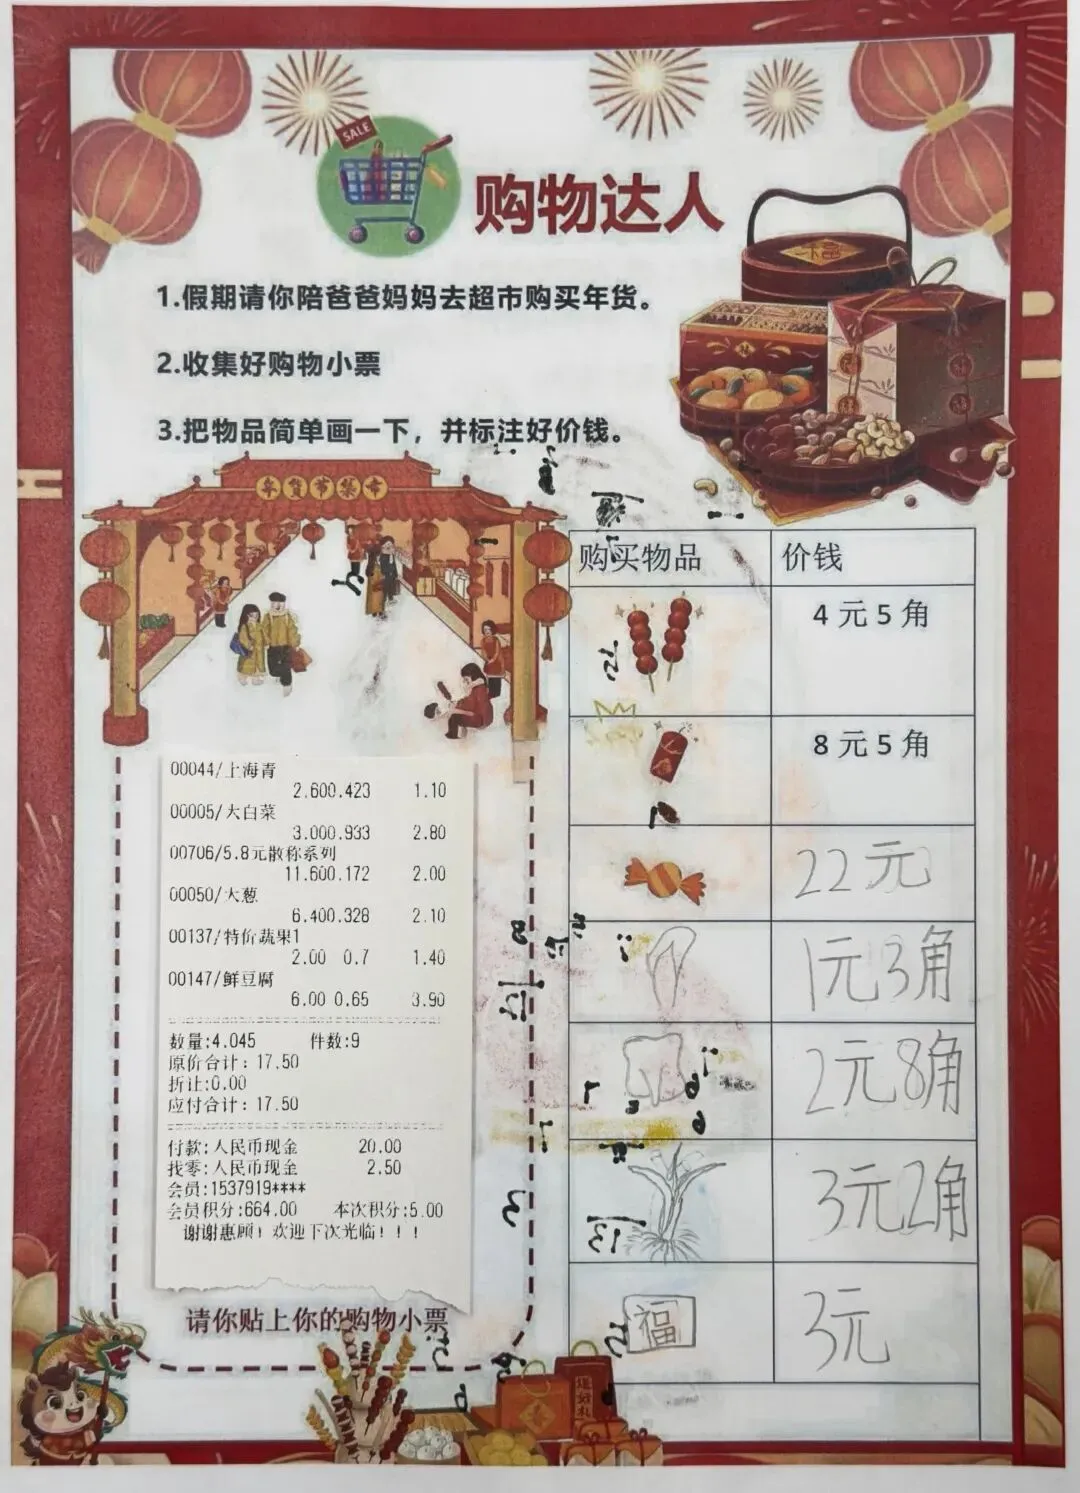 SALE
购物达人
1.假期请你陪爸爸妈妈去超市购买年货。
2.收集好购物小票
3.把物品简单画一下，并标注好价钱。
年货市集市
购买物品 价钱
4元5角
8元5角
22元
1元3角
2元8角
3元2角
福 3元
00044/上海青
2.600.423 1.10
00005/大白菜
3.000.933 2.80
00706/5.8元散称系列
11.600.172 2.00
00050/大葱
6.400.328 2.10
00137/特价蔬果1
2.00 0.7 1.40
00147/鲜豆腐
6.00 0.65 3.90
数量:4.045 件数:9
原价合计: 17.50
折让:0.00
应付合计: 17.50
付款:人民币现金 20.00
找零:人民币现金 2.50
会员:1537919****
会员积分:664.00 本次积分:5.00
谢谢惠顾! 欢迎下次光临! ! !
请你贴上你的购物小票